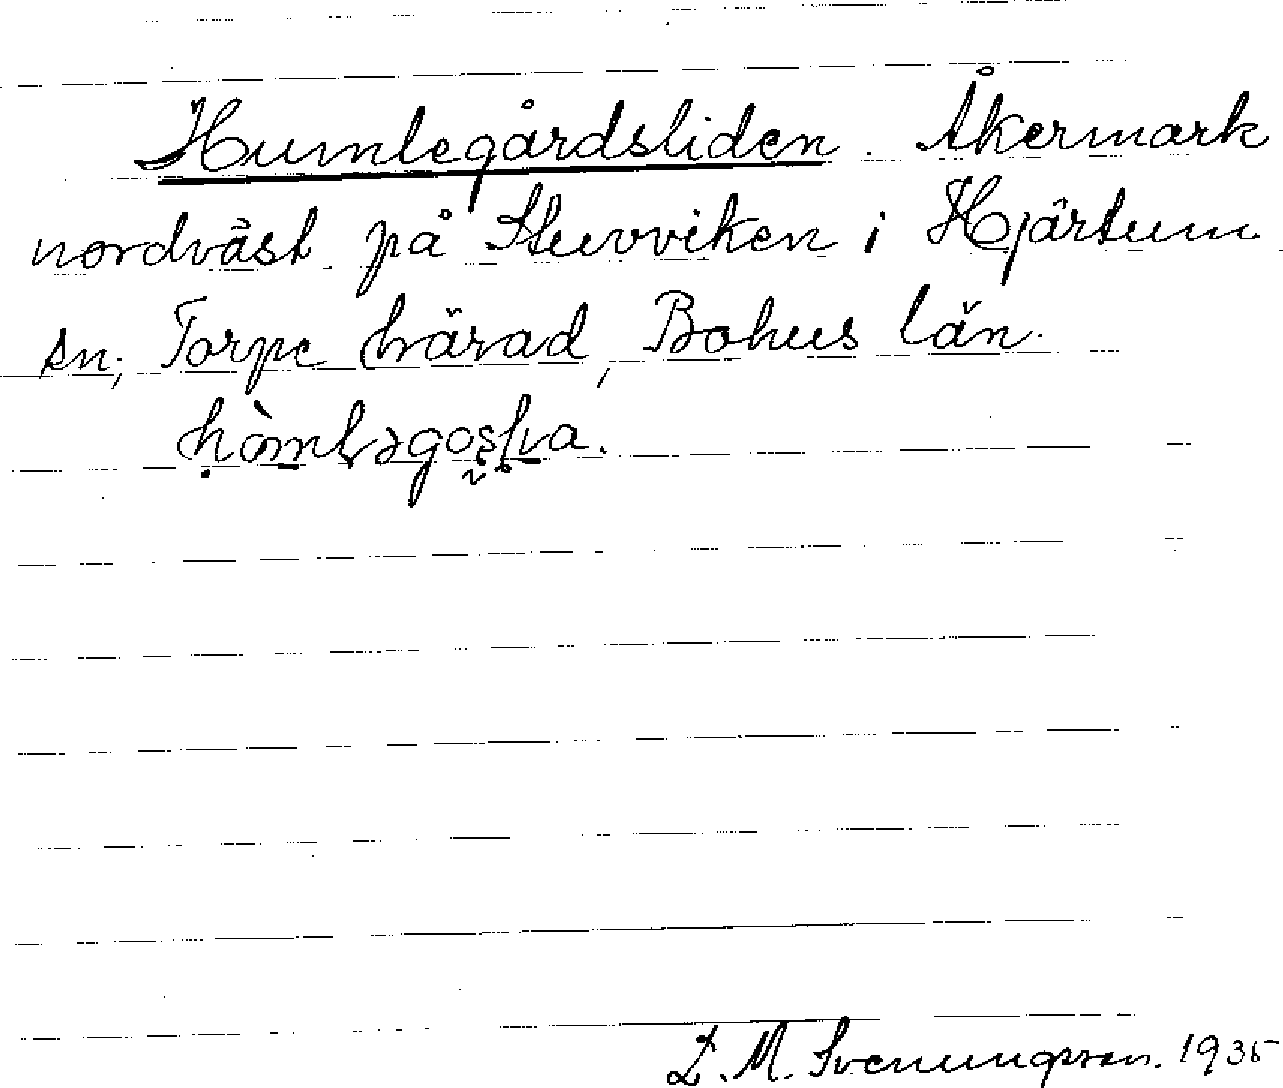 Humlegårdsliden. Åkermark
nordväst på Stuvviken i Hjärtum
sn; Torpe härad, Bohus län.
L. M. Svenungsson. 1935